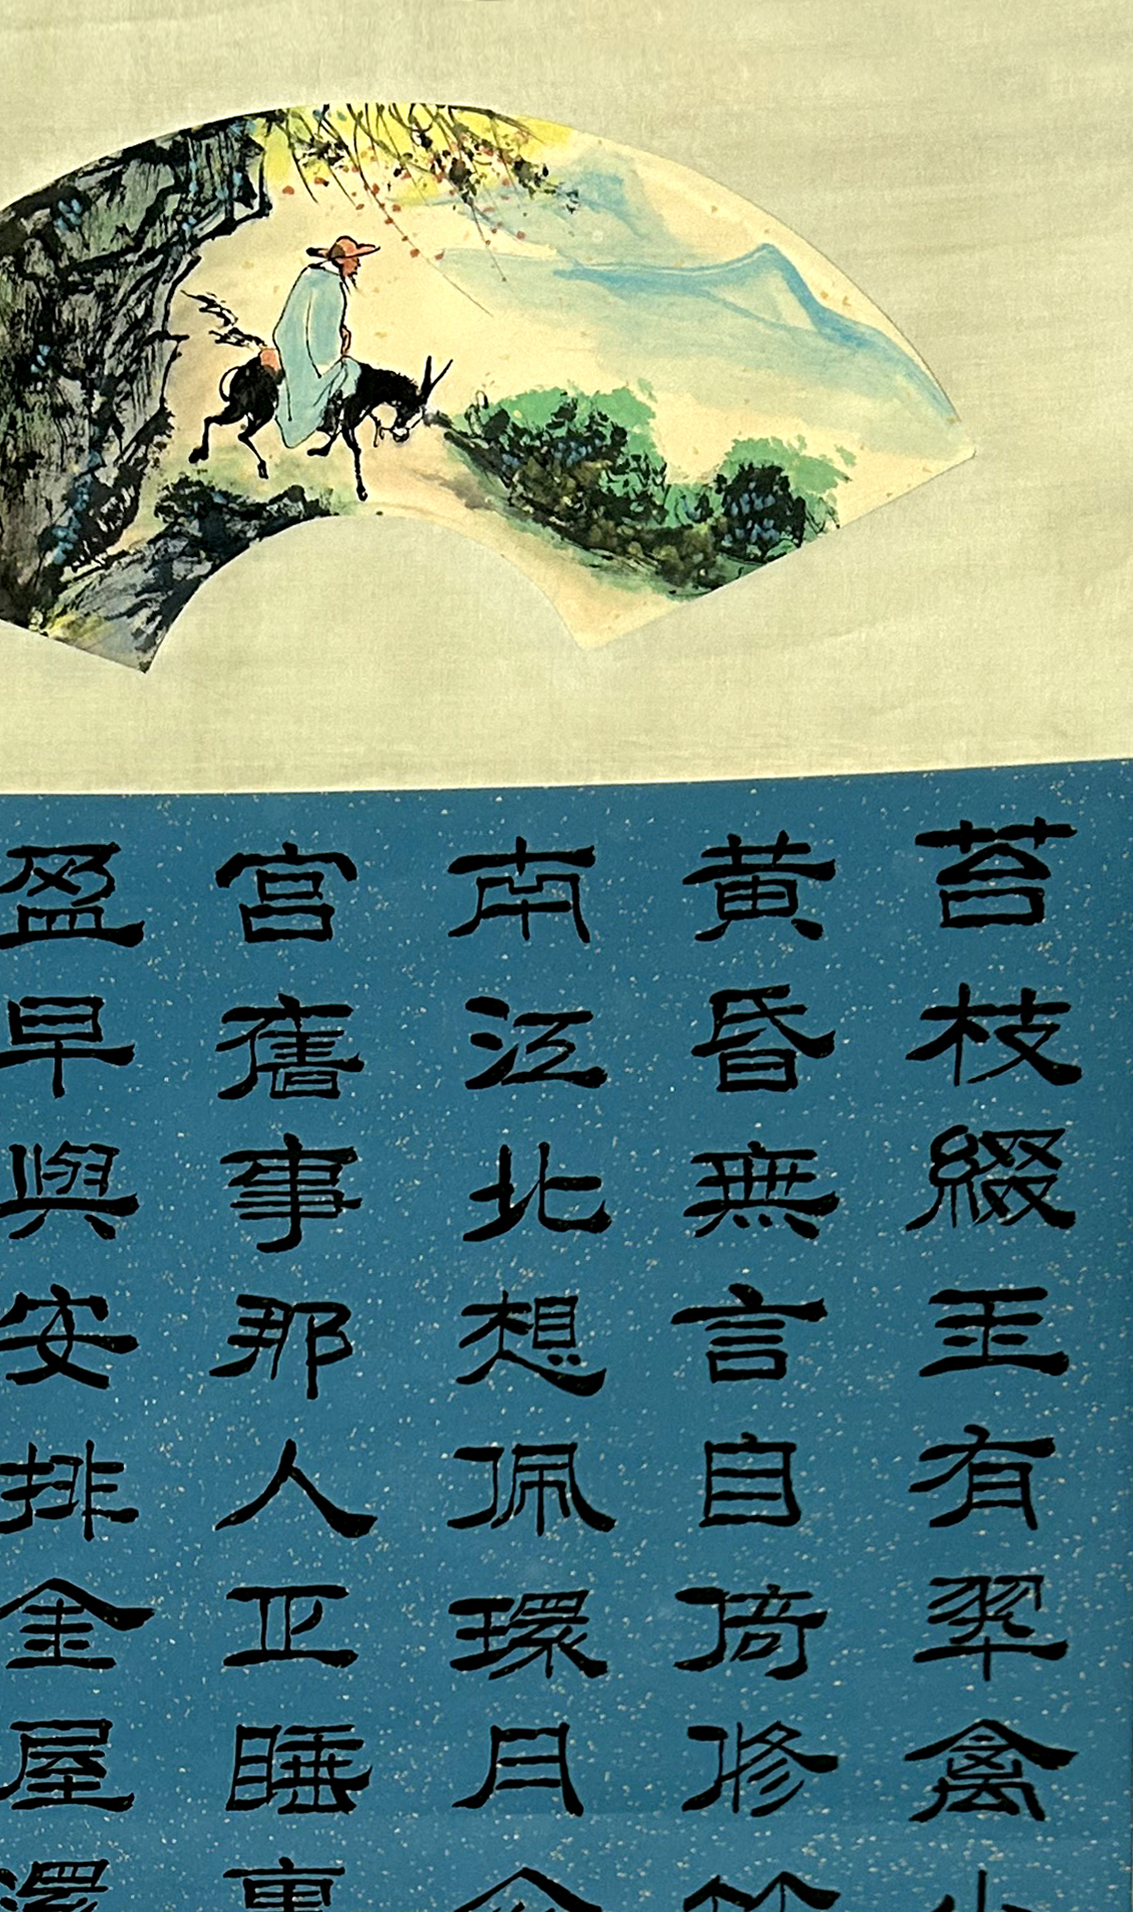 苔枝綴玉有翠禽小
黃昏無言自倚修竹
南江北想佩環月
宮舊事那人正睡裏
盈早與安排金屋還